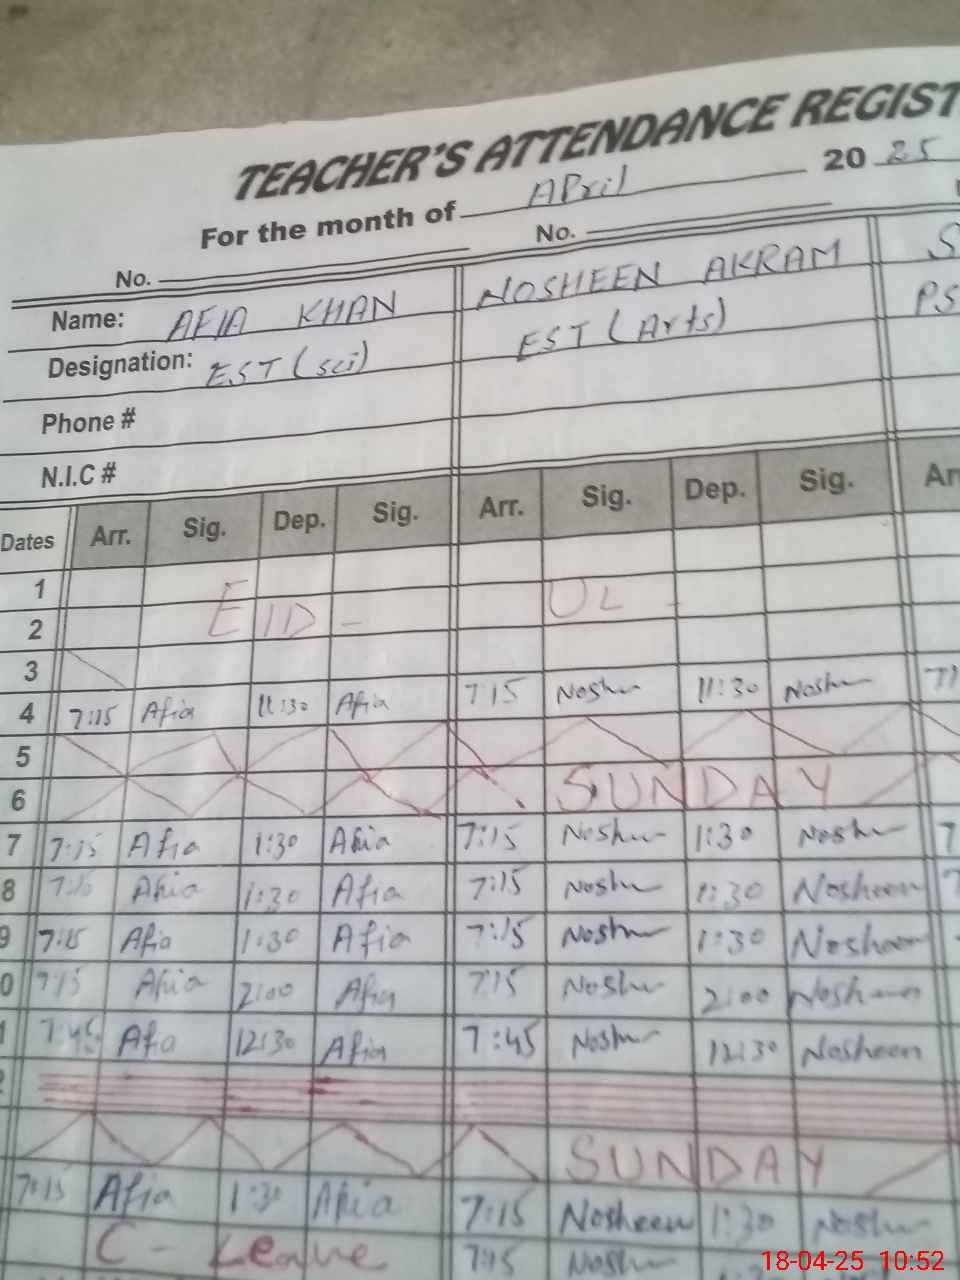 TEACHER'S ATTENDANCE REGIST
For the month of April 20 25
No. No.
Name: AFIA KHAN NOSHEEN AKRAM S
Designation: EST (sci) EST (Arts) PS
Phone #
N.I.C #
Dates Arr. Sig. Dep. Sig. Arr. Sig. Dep. Sig. Arr
1
2 EID - UL -
3
4 7:15 Afia 11:30 Afia 7:15 Noshn 11:30 Noshn
5
6 SUNDAY
7 7:15 Afia 1:30 Afia 7:15 Noshn 1:30 Noshn 7
8 7:15 Afia 1:30 Afia 7:15 Noshn 1:30 Nosheen 7
9 7:15 Afia 1:30 Afia 7:15 Noshn 1:30 Nosheen
0 7:15 Afia 2:00 Afia 7:15 Noshn 2:00 Nosheen
1 7:45 Afia 12:30 Afia 7:45 Noshn 12:30 Nosheen
2
SUNDAY
7:15 Afia 1:30 Afia 7:15 Nosheen 1:30 Noshn
C - Leave 7:15 Noshn
18-04-25 10:52